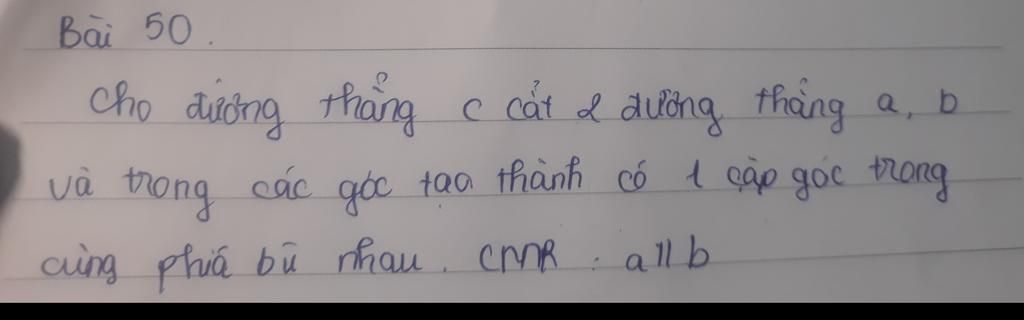 Bài 50.
Cho đường thẳng c cắt 2 đường thẳng a, b
và trong các góc tạo thành có 1 cặp góc trong
cùng phiá bù nhau. CMR : a // b